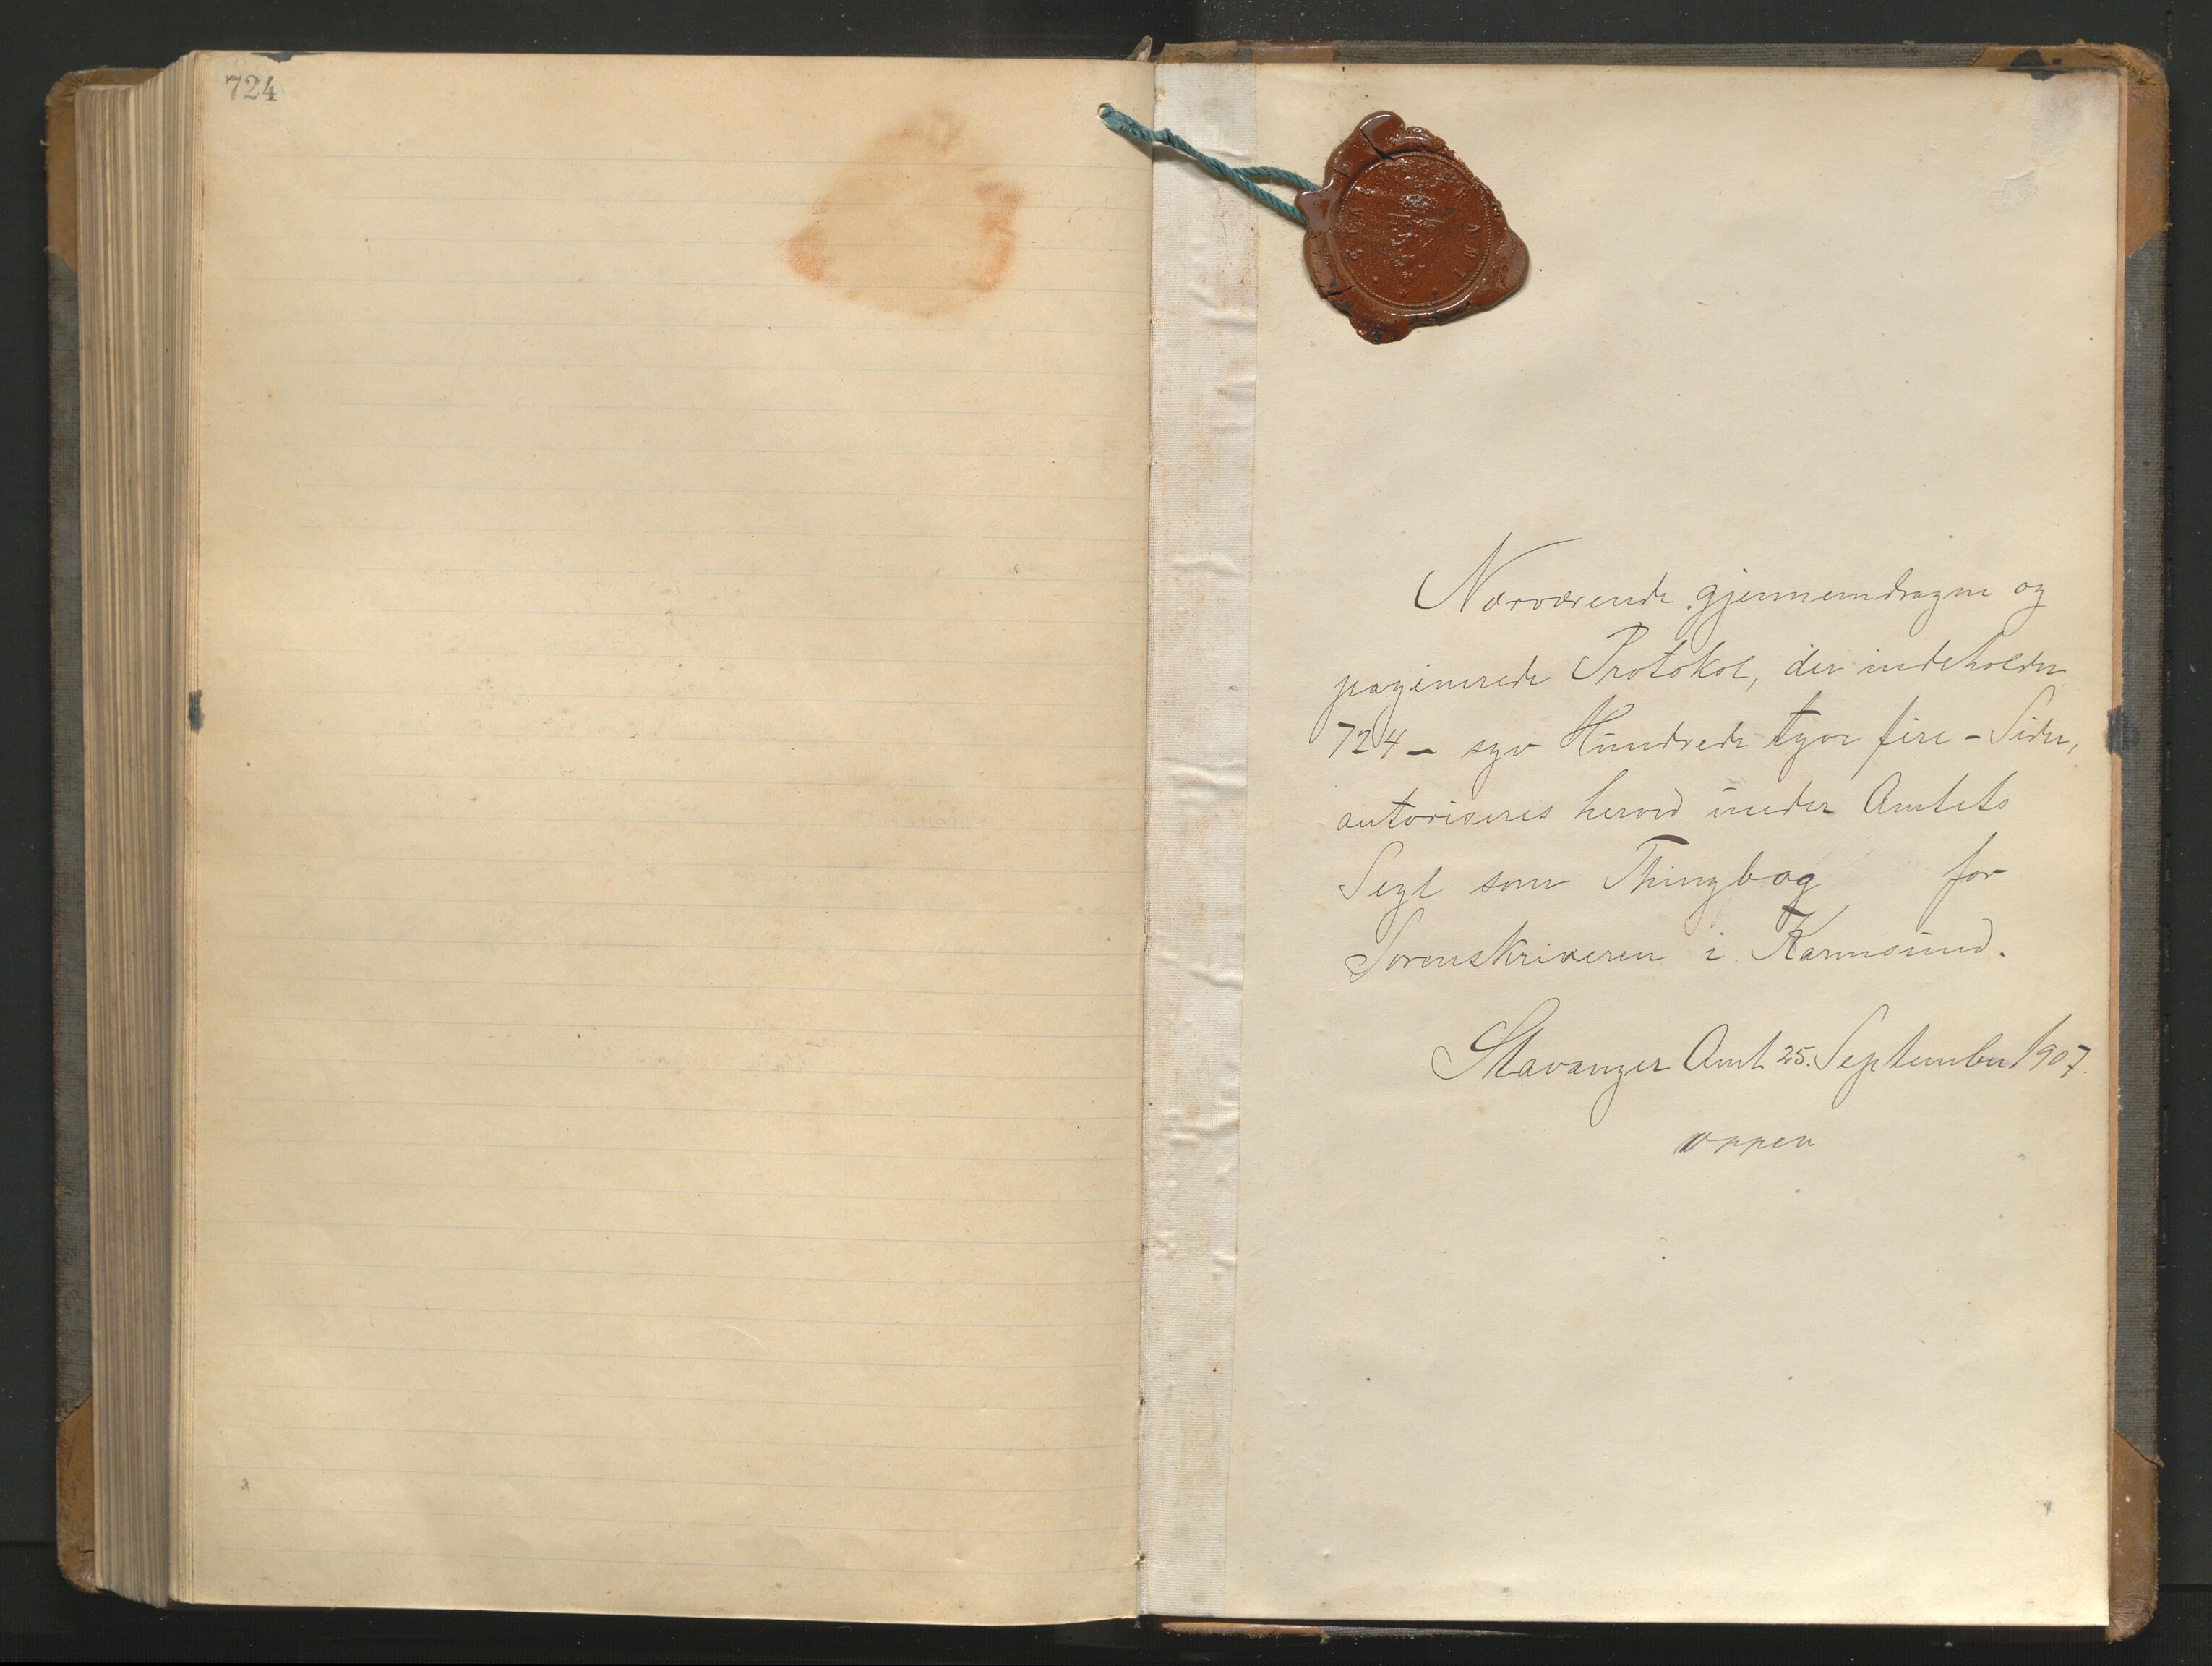 724
Nærværende gjennemdragne og
paginerede Protokol, der indeholder
724 – syv Hundrede tyve fire – Sider,
autoriseres herved under Amtets
Segl som Thingbog for
Sorenskriveren i Karmsund.
Stavanger Amt 25. September 1907.